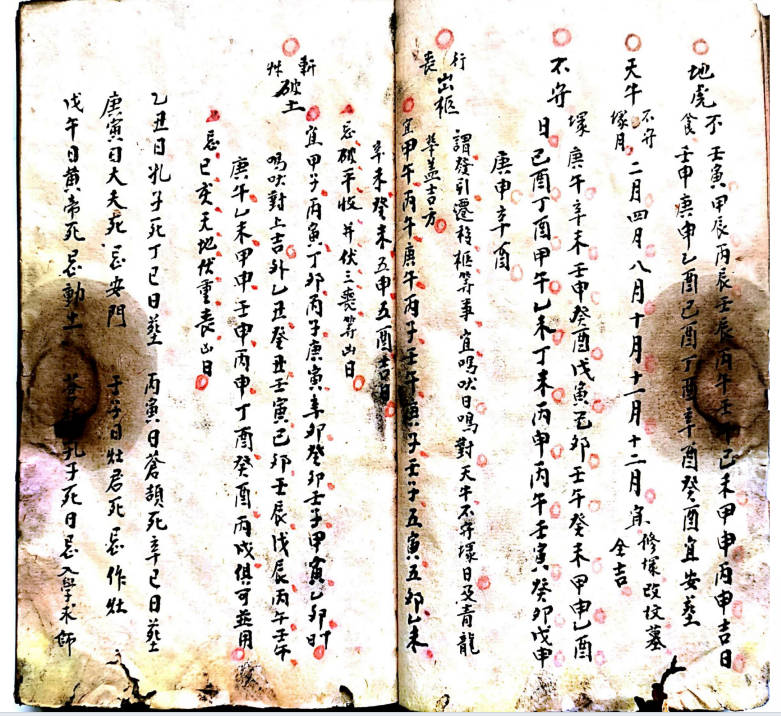 地虎不 壬寅甲辰丙辰壬辰丙午壬己未甲申丙申吉日
食 壬申庚申乙酉己酉丁酉辛酉癸酉宜安塟
天牛 不守塚月 二月四月八月十月十一月十二月 修塚改坟墓全吉
塚 庚午辛未壬申癸酉戊寅己卯壬午癸未甲申乙酉
不守日 己酉丁酉甲午乙未丁未丙申丙午壬寅癸卯戊申
庚申辛酉
行丧 出柩 謂發引遷移柩等事宜鳴吠日鳴對天牛不守塚日及青龍
華盖吉方
宜甲午丙午庚午丙子壬午庚子壬子五寅五卯乙未
辛未癸未五申五酉吉日
忌破平收并伏三喪等凶日
斬艸 破土 宜甲子丙寅丁卯丙子庚寅辛卯癸卯壬子甲寅乙卯日
鳴吠對上吉外乙丑癸丑壬寅己卯壬辰戊辰丙午壬午
庚午乙未甲申壬申丙申丁酉癸酉丙戌俱可並用
忌巳亥天地伏重丧凶日
乙丑日孔子死丁巳日塟 丙寅日蒼頡死辛巳日塟
庚寅日大夫死忌安門 子日灶君死忌作灶
戊午日黄帝死忌動土 孔子死日忌入學求師